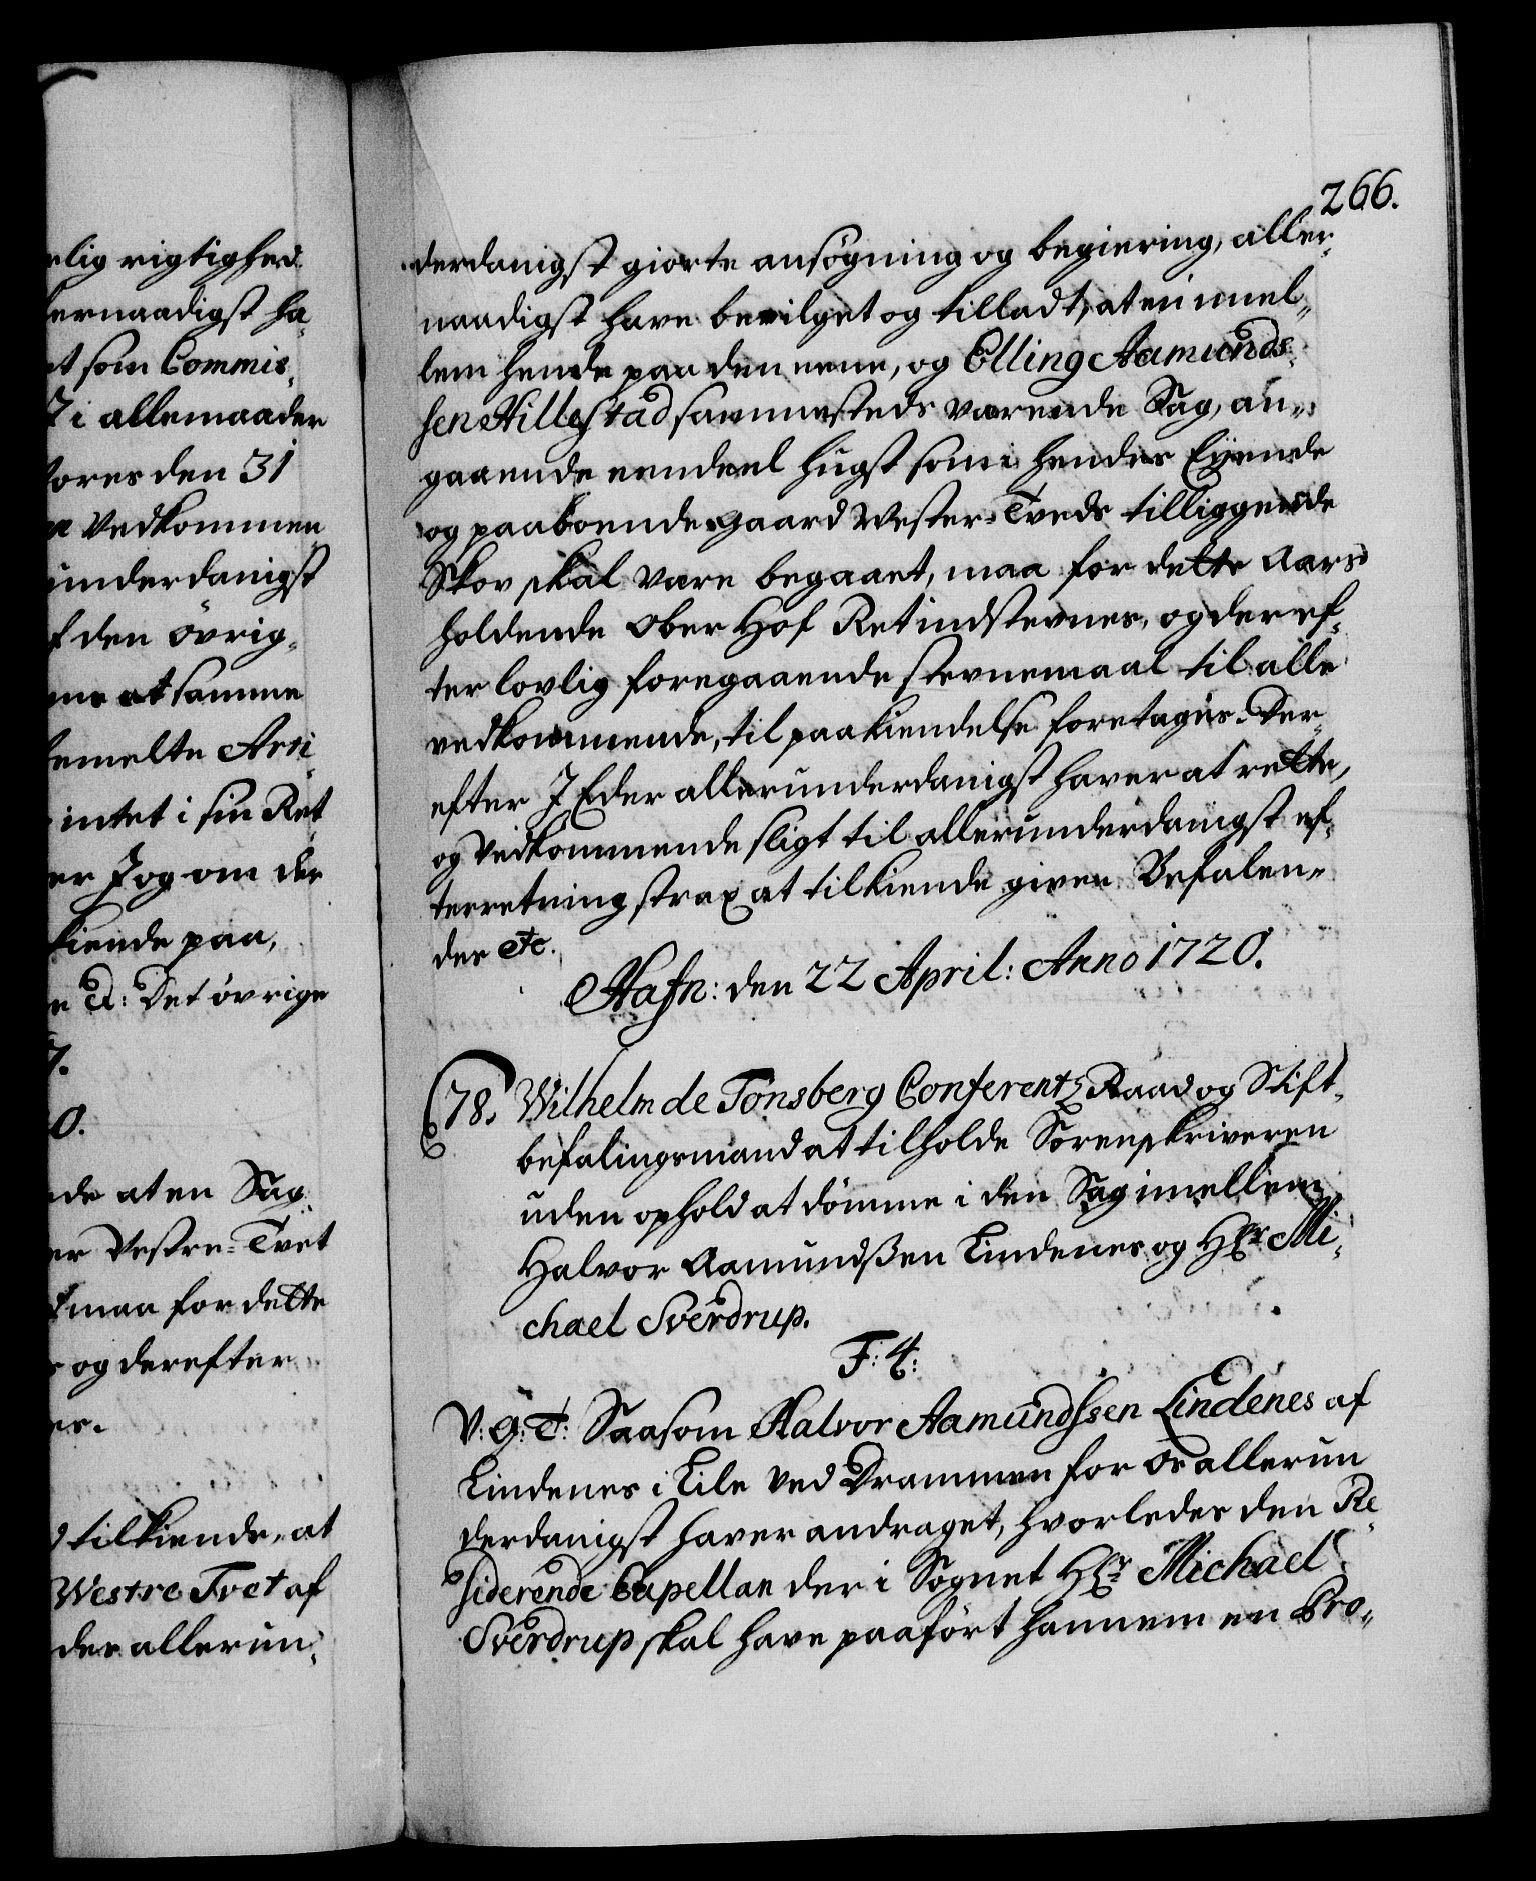 rlig rigtighed
ernaadigst ha¬
et som Commis¬
i allemaader
vores den 31
Vedkommen
underdanigst
f den övrig¬
at samme
bemelte Arti¬
intet i sin Ret
er J og om der
kiende paa,
Det övrige
7.
0.
de at en Sag
er Vestre-Tvet
maa for dette
og derefter
es.
tilkiende, at
Westre Tvet af
des allerun¬
266.
derdanigst giorte ansögning og begiering, aller¬
naadigst have bevilget og tilladt, at en imel¬
lem hende paa den eene, og Elling Aamunds¬
sen Hillestad sammesteds værende Sag, an¬
gaaende eendeel hugst som i hendes Eyende
og paaboende gaard Vester-Tveds tilliggende
Skov skal være begaaet, maa for dette Aars
holdende Ober Hof Ret indstevnes, og deref¬
ter lovlig foregaaende stevnemaal til alle
vedkommende, til paakiendelse foretages. Der¬
efter J Eder allerunderdanigst haver at rette,
og Vedkommende sligt til allerunderdanigst ef¬
terretning strax at tilkiende give. Befalen¬
des etc.
Hafn: den 22 April: Anno 1720.
78. Wilhelm de Tonsberg Conferentz Raad og Stift¬
befalingsmand at tilholde Sorenskriveren
uden ophold at dömme i den Sag imellem
Halvor Aamundßen Lindenes og Hr Mi¬
chael Sverdrup.
F: 4:
V: G: T: Saasom Halvor Aamundssen Lindenes af
Lindenes i Lile ved Drammen for Os allerun
derdanigst haver andraget, hvorledes den Re¬
siderende Capellan der i Sognet Hr Michael
Sverdrup skal have paaført hannem en Pro¬